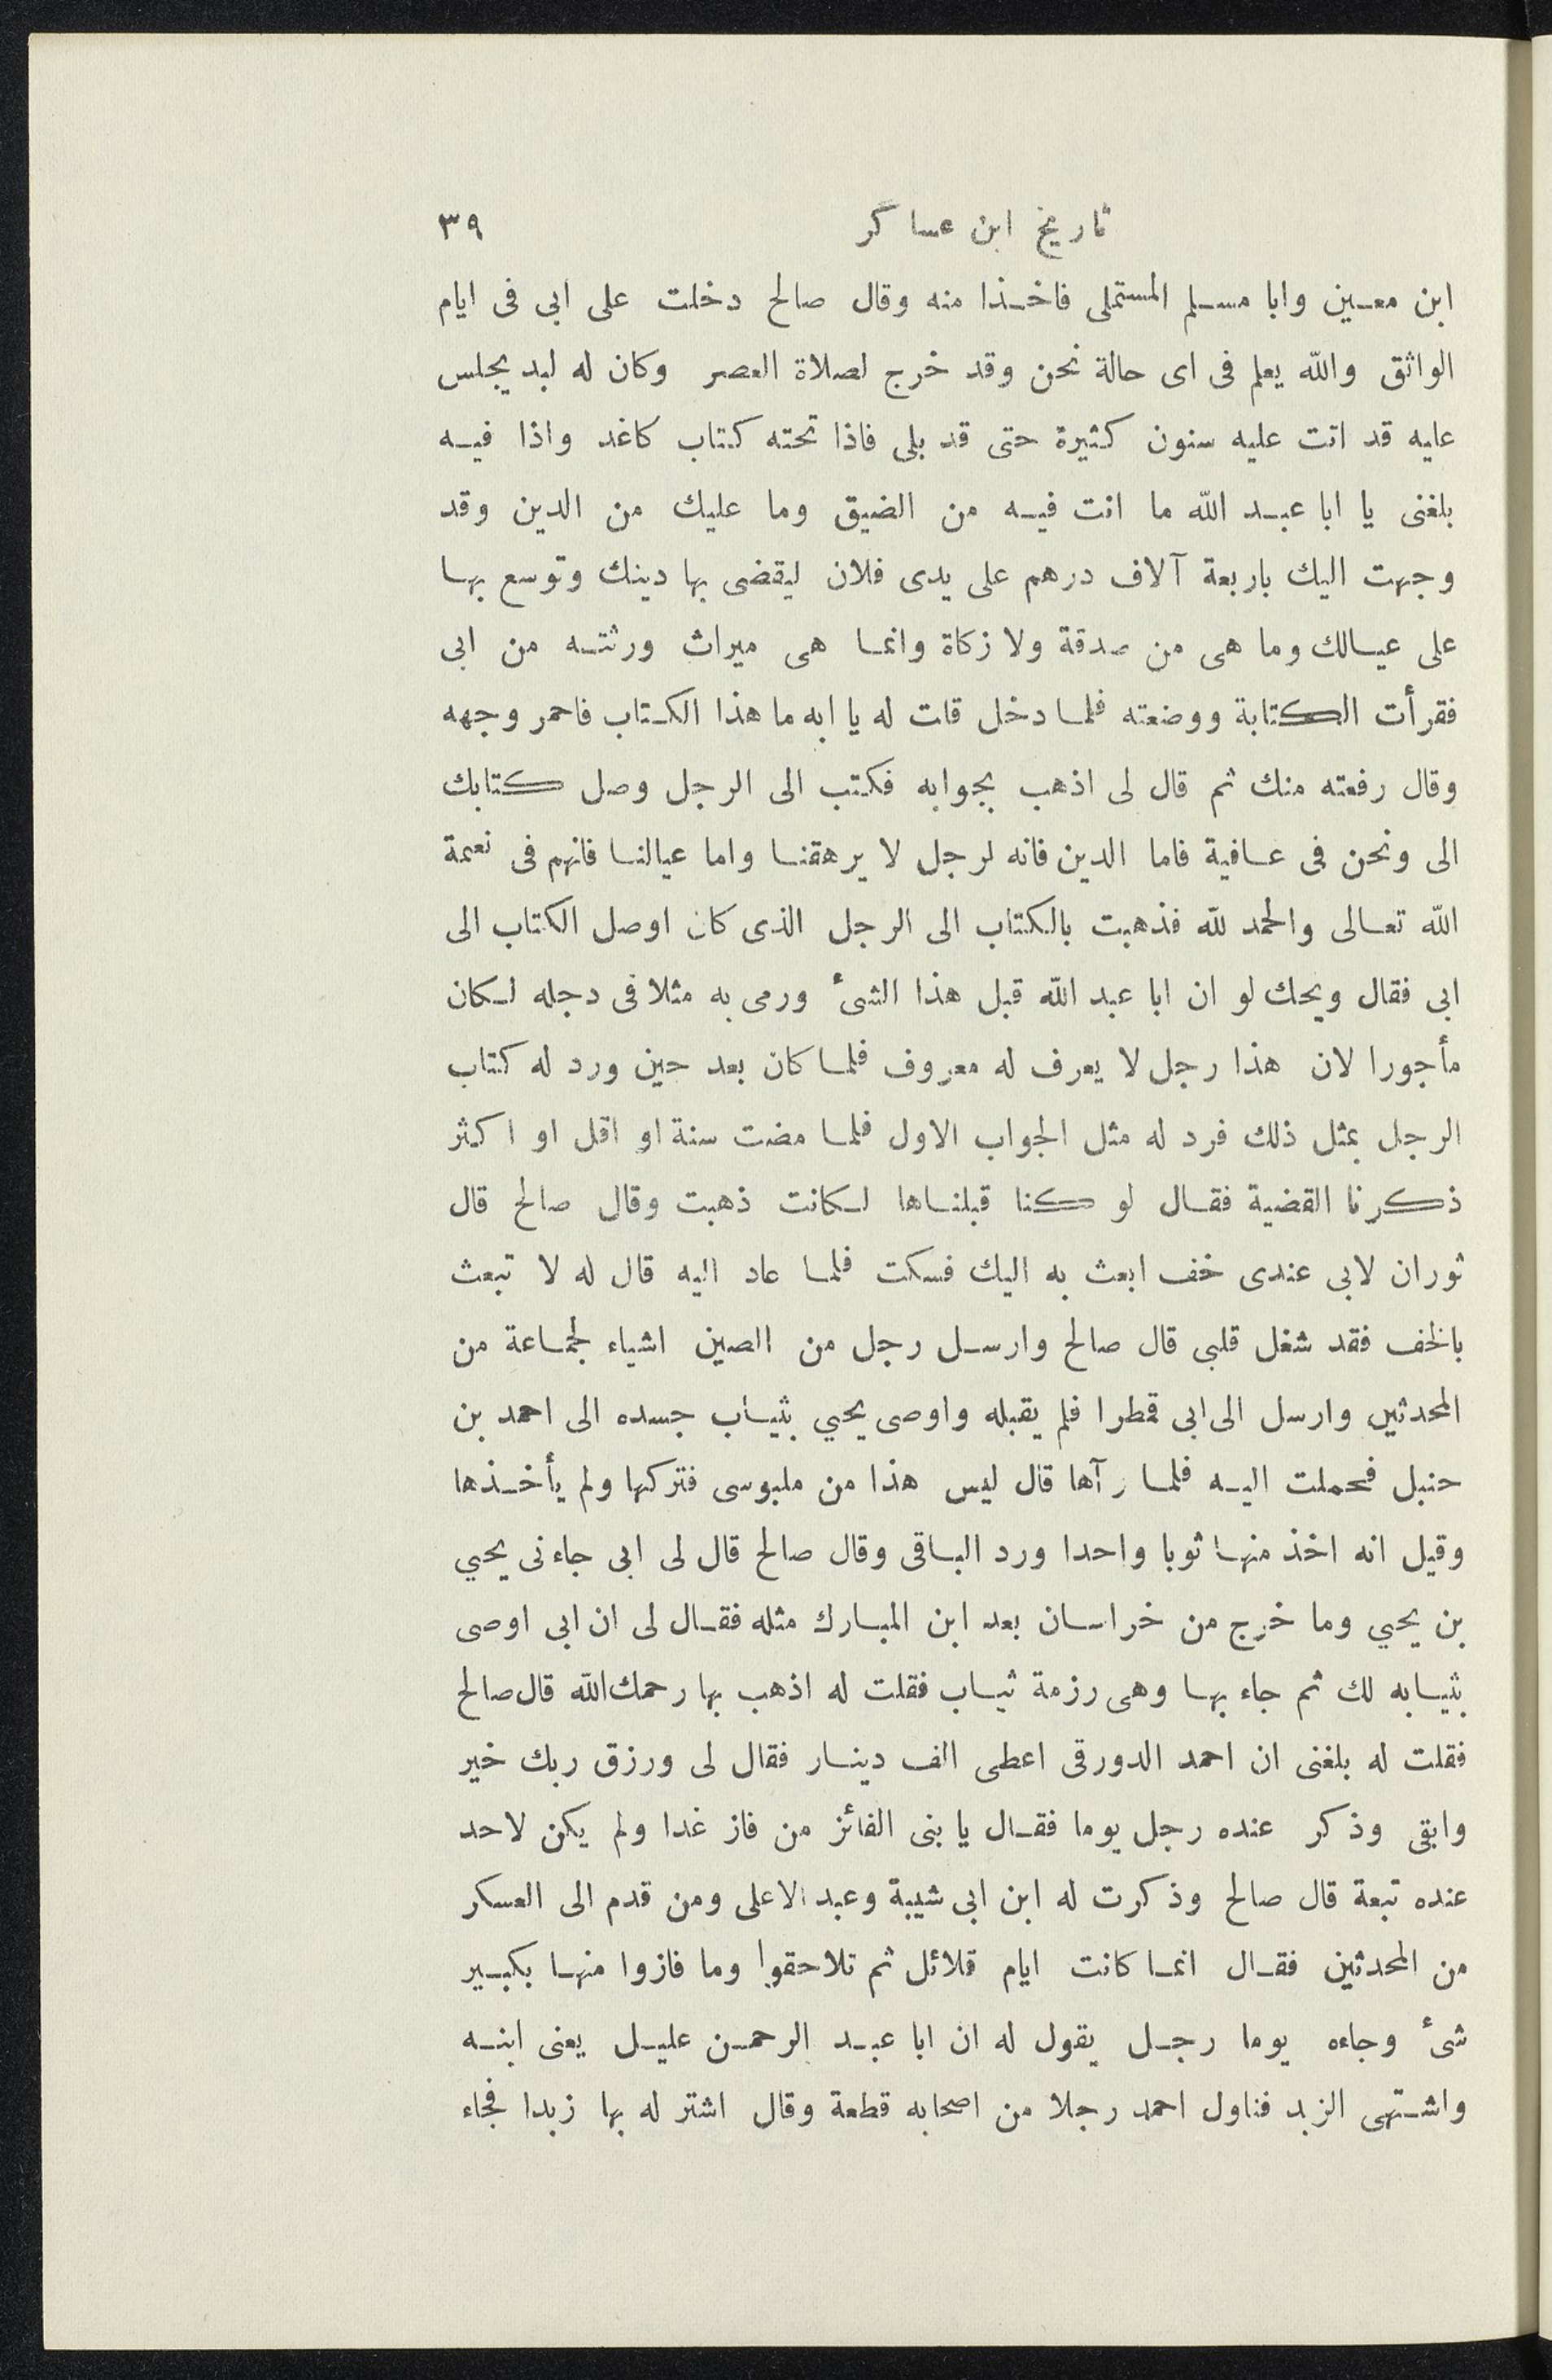 تاريخ ابن عساكر ٣٩
ابن معين وابا مسلم المستملى فاخذا منه وقال صالح دخلت على ابى فى ايام
الواثق والله يعلم فى اى حالة نحن وقد خرج لصلاة العصر وكان له لبد يجلس
عليه قد اتت عليه سنون كثيرة حتى قد بلى فاذا تحته كتاب كاغد واذا فيه
بلغنى يا ابا عبد الله ما انت فيه من الضيق وما عليك من الدين وقد
وجهت اليك باربعة آلاف درهم على يدى فلان ليقضى بها دينك وتوسع بها
على عيالك وما هى من صدقة ولا زكاة وانما هى ميراث ورثته من ابى
فقرأت الكتابة ووضعته فلما دخل قلت له يا ابه ما هذا الكتاب فاحمر وجهه
وقال رفعته منك ثم قال لى اذهب بجوابه فكتب الى الرجل وصل كتابك
الى ونحن فى عافية فاما الدين فانه لرجل لا يرهقنا واما عيالنا فانهم فى نعمة
الله تعالى والحمد لله فذهبت بالكتاب الى الرجل الذى كان اوصل الكتاب الى
ابى فقال ويحك لو ان ابا عبد الله قبل هذا الشئ ورمى به مثلا فى دجله لكان
مأجورا لان هذا رجل لا يعرف له معروف فلما كان بعد حين ورد له كتاب
الرجل بمثل ذلك فرد له مثل الجواب الاول فلما مضت سنة او اقل او اكثر
ذكرنا القضية فقال لو كنا قبلناها لكانت ذهبت وقال صالح قال
ثوران لابى عندى خف ابعث به اليك فسكت فلما عاد اليه قال له لا تبعث
بالخف فقد شغل قلبى قال صالح وارسل رجل من الصين اشياء لجماعة من
المحدثين وارسل الى ابى قمطرا فلم يقبله واوصى يحيي بثياب جسده الى احمد بن
حنبل فحملت اليه فلما رآها قال ليس هذا من ملبوسى فتركها ولم يأخذها
وقيل انه اخذ منها ثوبا واحدا ورد الباقى وقال صالح قال لى ابى جاءنى يحيي
بن يحيي وما خرج من خراسان بعد ابن المبارك مثله فقال لى ان ابى اوصى
بثيابه لك ثم جاء بها وهى رزمة ثياب فقلت له اذهب بها رحمك الله قال صالح
فقلت له بلغنى ان احمد الدورقى اعطى الف دينار فقال لى ورزق ربك خير
وابقى وذكر عنده رجل يوما فقال يا بنى الفائز من فاز غدا ولم يكن لاحد
عنده تبعة قال صالح وذكرت له ابن ابى شيبة وعبد الاعلى ومن قدم الى العسكر
من المحدثين فقال انما كانت ايام قلائل ثم تلاحقوا وما فازوا منها بكبير
شئ وجاءه يوما رجل يقول له ان ابا عبد الرحمن عليل يعنى ابنه
واشتهى الزبد فناول احمد رجلا من اصحابه قطعة وقال اشتر له بها زبدا فجاء